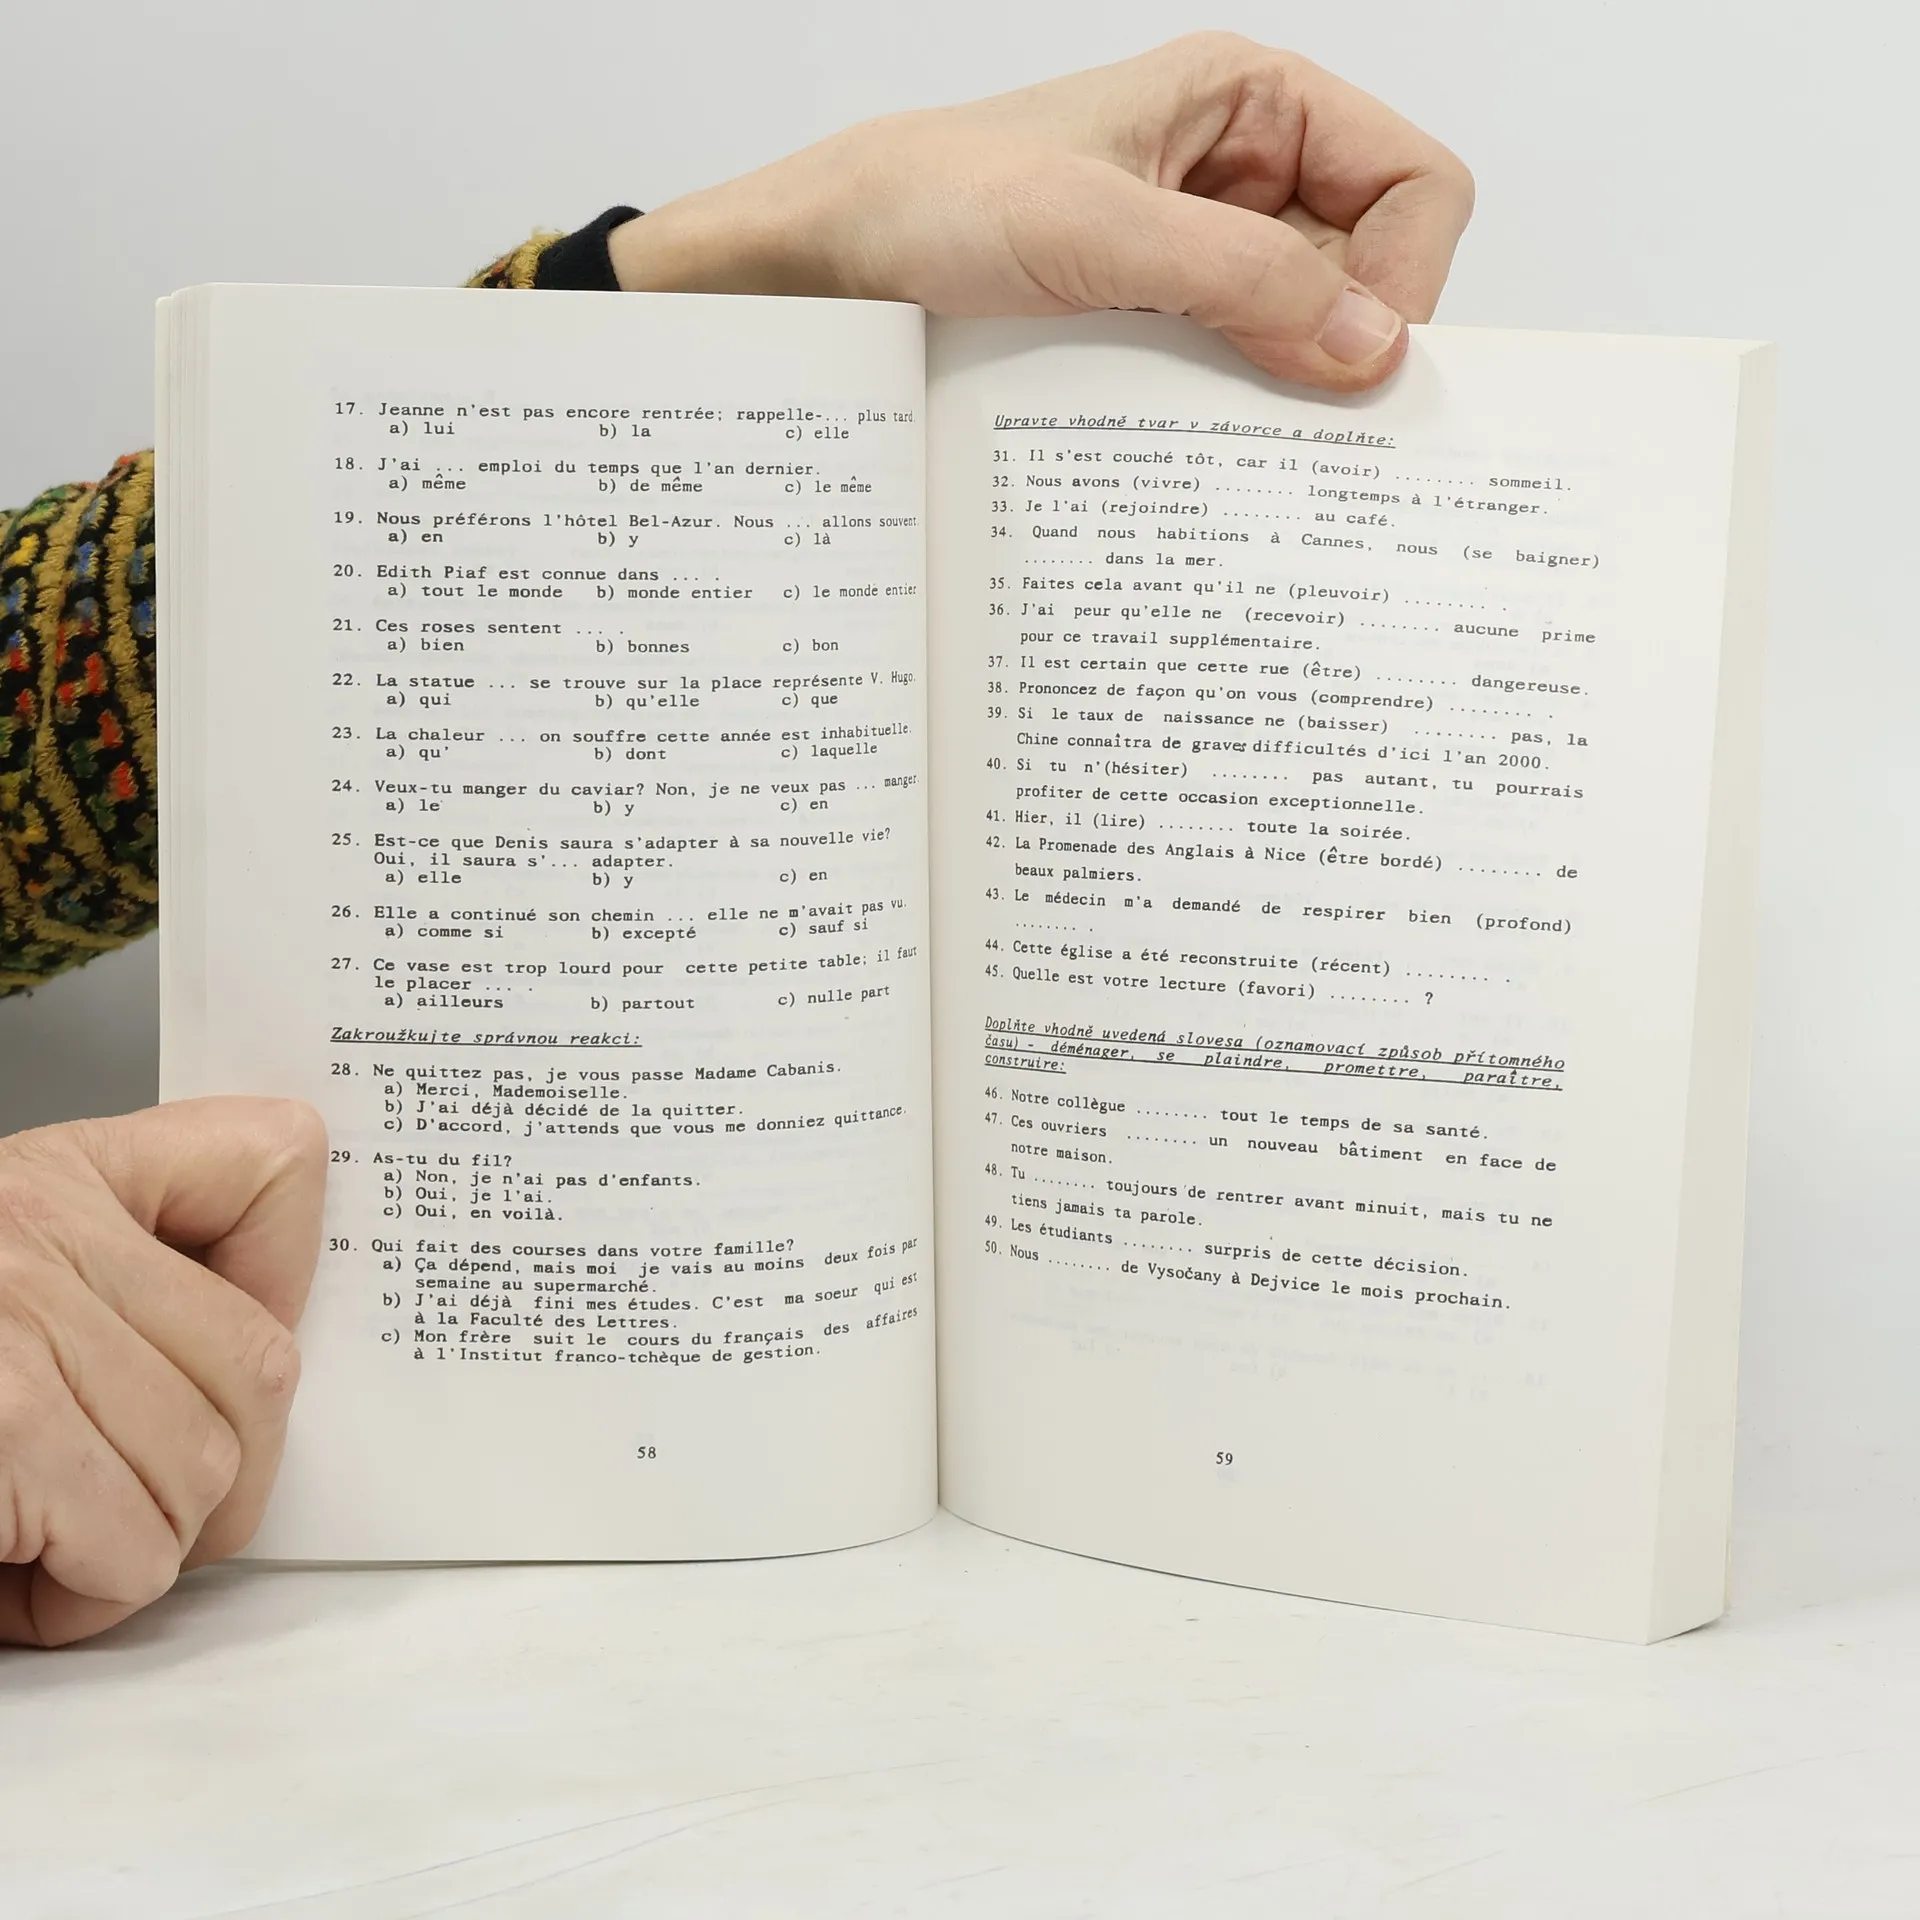 17. Jeanne n'est pas encore rentrée; rappelle-... plus tard.
a) lui b) la c) elle
18. J'ai ... emploi du temps que l'an dernier.
a) même b) de même c) le même
19. Nous préférons l'hôtel Bel-Azur. Nous ... allons souvent.
a) en b) y c) là
20. Edith Piaf est connue dans ... .
a) tout le monde b) monde entier c) le monde entier
21. Ces roses sentent ... .
a) bien b) bonnes c) bon
22. La statue ... se trouve sur la place représente V. Hugo.
a) qui b) qu'elle c) que
23. La chaleur ... on souffre cette année est inhabituelle.
a) qu' b) dont c) laquelle
24. Veux-tu manger du caviar? Non, je ne veux pas ... manger.
a) le b) y c) en
25. Est-ce que Denis saura s'adapter à sa nouvelle vie?
Oui, il saura s'... adapter.
a) elle b) y c) en
26. Elle a continué son chemin ... elle ne m'avait pas vu.
a) comme si b) excepté c) sauf si
27. Ce vase est trop lourd pour cette petite table; il faut
le placer ... .
a) ailleurs b) partout c) nulle part
Zakroužkujte správnou reakci:
28. Ne quittez pas, je vous passe Madame Cabanis.
a) Merci, Mademoiselle.
b) J'ai déjà décidé de la quitter.
c) D'accord, j'attends que vous me donniez quittance.
29. As-tu du fil?
a) Non, je n'ai pas d'enfants.
b) Oui, je l'ai.
c) Oui, en voilà.
30. Qui fait des courses dans votre famille?
a) Ça dépend, mais moi je vais au moins deux fois par
semaine au supermarché.
b) J'ai déjà fini mes études. C'est ma soeur qui est
à la Faculté des Lettres.
c) Mon frère suit le cours du français des affaires
à l'Institut franco-tchèque de gestion.
58
Upravte vhodně tvar v závorce a doplňte:
31. Il s'est couché tôt, car il (avoir) ........ sommeil.
32. Nous avons (vivre) ........ longtemps à l'étranger.
33. Je l'ai (rejoindre) ........ au café.
34. Quand nous habitions à Cannes, nous (se baigner)
........ dans la mer.
35. Faites cela avant qu'il ne (pleuvoir) ........ .
36. J'ai peur qu'elle ne (recevoir) ........ aucune prime
pour ce travail supplémentaire.
37. Il est certain que cette rue (être) ........ dangereuse.
38. Prononcez de façon qu'on vous (comprendre) ........ .
39. Si le taux de naissance ne (baisser) ........ pas, la
Chine connaîtra de graves difficultés d'ici l'an 2000.
40. Si tu n'(hésiter) ........ pas autant, tu pourrais
profiter de cette occasion exceptionnelle.
41. Hier, il (lire) ........ toute la soirée.
42. La Promenade des Anglais à Nice (être bordé) ........ de
beaux palmiers.
43. Le médecin m'a demandé de respirer bien (profond)
........ .
44. Cette église a été reconstruite (récent) ........ .
45. Quelle est votre lecture (favori) ........ ?
Doplňte vhodně uvedená slovesa (oznamovací způsob přítomného
času) - déménager, se plaindre, promettre, paraître,
construire:
46. Notre collègue ........ tout le temps de sa santé.
47. Ces ouvriers ........ un nouveau bâtiment en face de
notre maison.
48. Tu ........ toujours de rentrer avant minuit, mais tu ne
tiens jamais ta parole.
49. Les étudiants ........ surpris de cette décision.
50. Nous ........ de Vysočany à Dejvice le mois prochain.
59